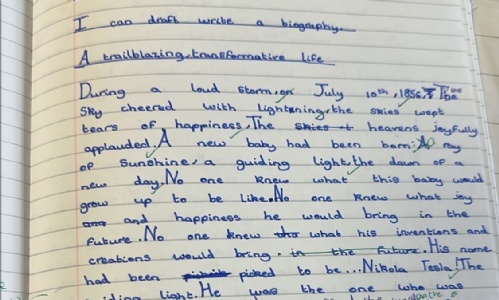 I can draft write a biography.
A trailblazing, transformative life
During a loud storm, on July 10th, 1856, The
sky cheered with lightning, the skies wept
tears of happiness, The skies heavens joyfully
applauded. A new baby had been born: A ray
of sunshine, a guiding light, the dawn of a
new day. No one knew what this baby would
grow up to be like. No one knew what joy
and happiness he would bring in the
future. No one knew what his inventions and
creations would bring in the future. His name
had been picked to be... Nikola Tesla! The
guiding light. He was the one who was